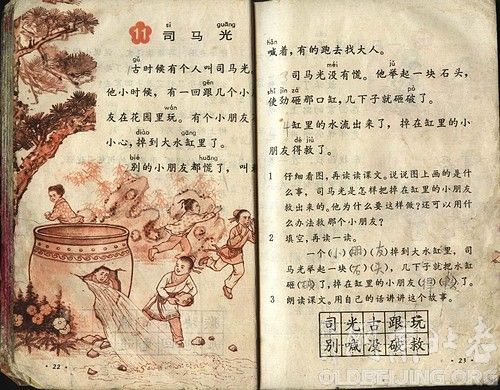 sī guāng
11 司马光
gǔ
古时候有个人叫司马光
gēn
他小时候，有一回跟几个小
wán
友在花园里玩。有个小朋友
diào gāng
小心，掉到大水缸里了。
bié huāng
别的小朋友都慌了，叫
· 22 ·
hǎn
喊着，有的跑去找大人。
méi jǔ
司马光没有慌。他举起一块石头，
shǐ jìn zá pò
使劲砸那口缸，几下子就砸破了。
缸里的水流出来了，掉在缸里的小
dé jiù
朋友得救了。
1 仔细看图，再读读课文。说说图上画的是什
么事，司马光是怎样把掉在缸里的小朋友
救出来的。他为什么要这样做？还可以用什
么办法救那个小朋友？
2 填空，再读一读。
一个(小)(朋)(友)掉到大水缸里，司
马光举起一块(石)(头)，几下子就把水缸
砸( )了，掉在缸里的小朋友( )( )了。
3 朗读课文。用自己的话讲讲这个故事。
司光古跟玩
别喊没破救
· 23 ·
OLDBEIJING.ORG